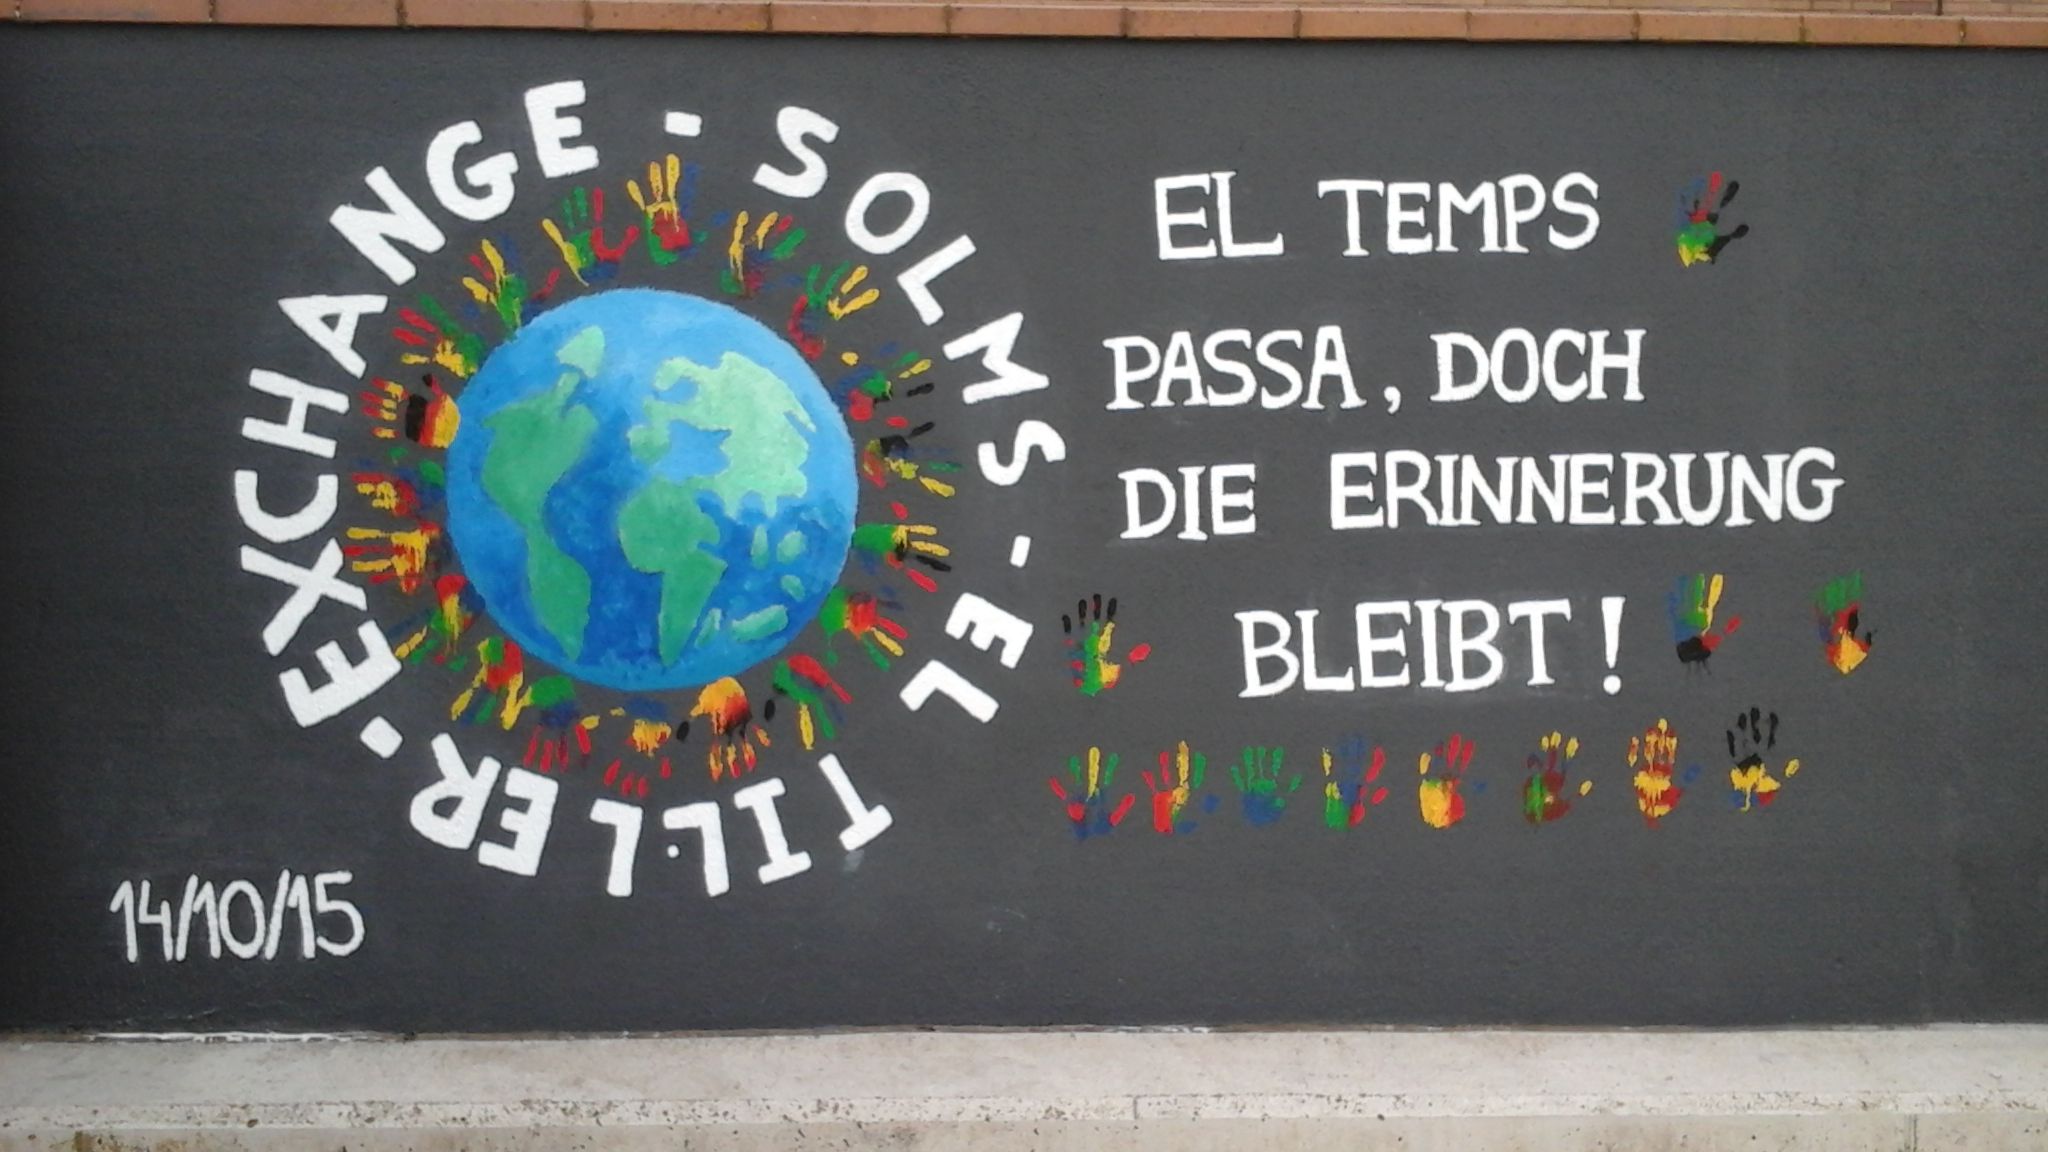 EXCHANGE - SOLMS - EL TIL·LER -
EL TEMPS
PASSA, DOCH
DIE ERINNERUNG
BLEIBT!
14/10/15